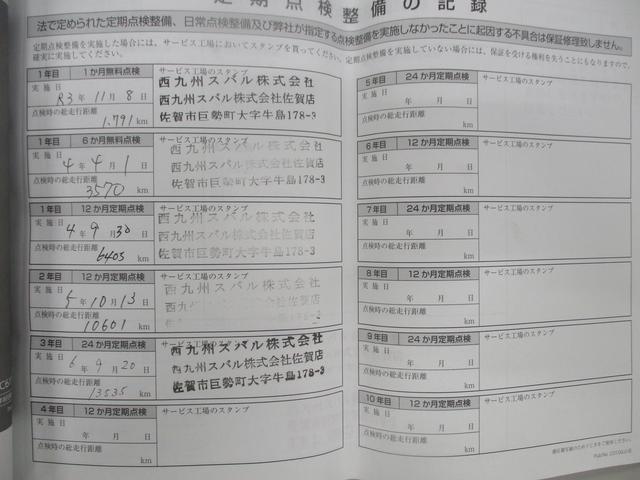 定期点検整備の記録
法で定められた定期点検整備、日常点検整備及び弊社が指定する点検整備を実施しなかったことに起因する不具合は保証修理致しません。
定期点検整備を実施した場合には、サービス工場においてスタンプを貰ってください。定期点検整備を実施していない場合には、保証を受ける権利を失うことにもなりますので、
確実に実施してください。
1年目 1か月無料点検 サービス工場のスタンプ
実施日 R3年 11月 8日
点検時の総走行距離
1,791 km
西九州スバル株式会社
西九州スバル株式会社佐賀店
佐賀市巨勢町大字牛島178-3
1年目 6か月無料点検 サービス工場のスタンプ
実施日 4年 4月 1日
点検時の総走行距離
3570 km
西九州スバル株式会社
西九州スバル株式会社佐賀店
佐賀市巨勢町大字牛島178-3
1年目 12か月定期点検 サービス工場のスタンプ
実施日 4年 9月 30日
点検時の総走行距離
6405 km
西九州スバル株式会社
西九州スバル株式会社佐賀店
佐賀市巨勢町大字牛島178-3
2年目 12か月定期点検 サービス工場のスタンプ
実施日 5年 10月 13日
点検時の総走行距離
10601 km
西九州スバル株式会社
3年目 24か月定期点検 サービス工場のスタンプ
実施日 6年 9月 20日
点検時の総走行距離
13535 km
西九州スバル株式会社
西九州スバル株式会社佐賀店
佐賀市巨勢町大字牛島178-3
4年目 12か月定期点検 サービス工場のスタンプ
実施日 年 月 日
点検時の総走行距離
km
5年目 24か月定期点検 サービス工場のスタンプ
実施日 年 月 日
点検時の総走行距離
km
6年目 12か月定期点検 サービス工場のスタンプ
実施日 年 月 日
点検時の総走行距離
km
7年目 24か月定期点検 サービス工場のスタンプ
実施日 年 月 日
点検時の総走行距離
km
8年目 12か月定期点検 サービス工場のスタンプ
実施日 年 月 日
点検時の総走行距離
km
9年目 24か月定期点検 サービス工場のスタンプ
実施日 年 月 日
点検時の総走行距離
km
10年目 12か月定期点検 サービス工場のスタンプ
実施日 年 月 日
点検時の総走行距離
km